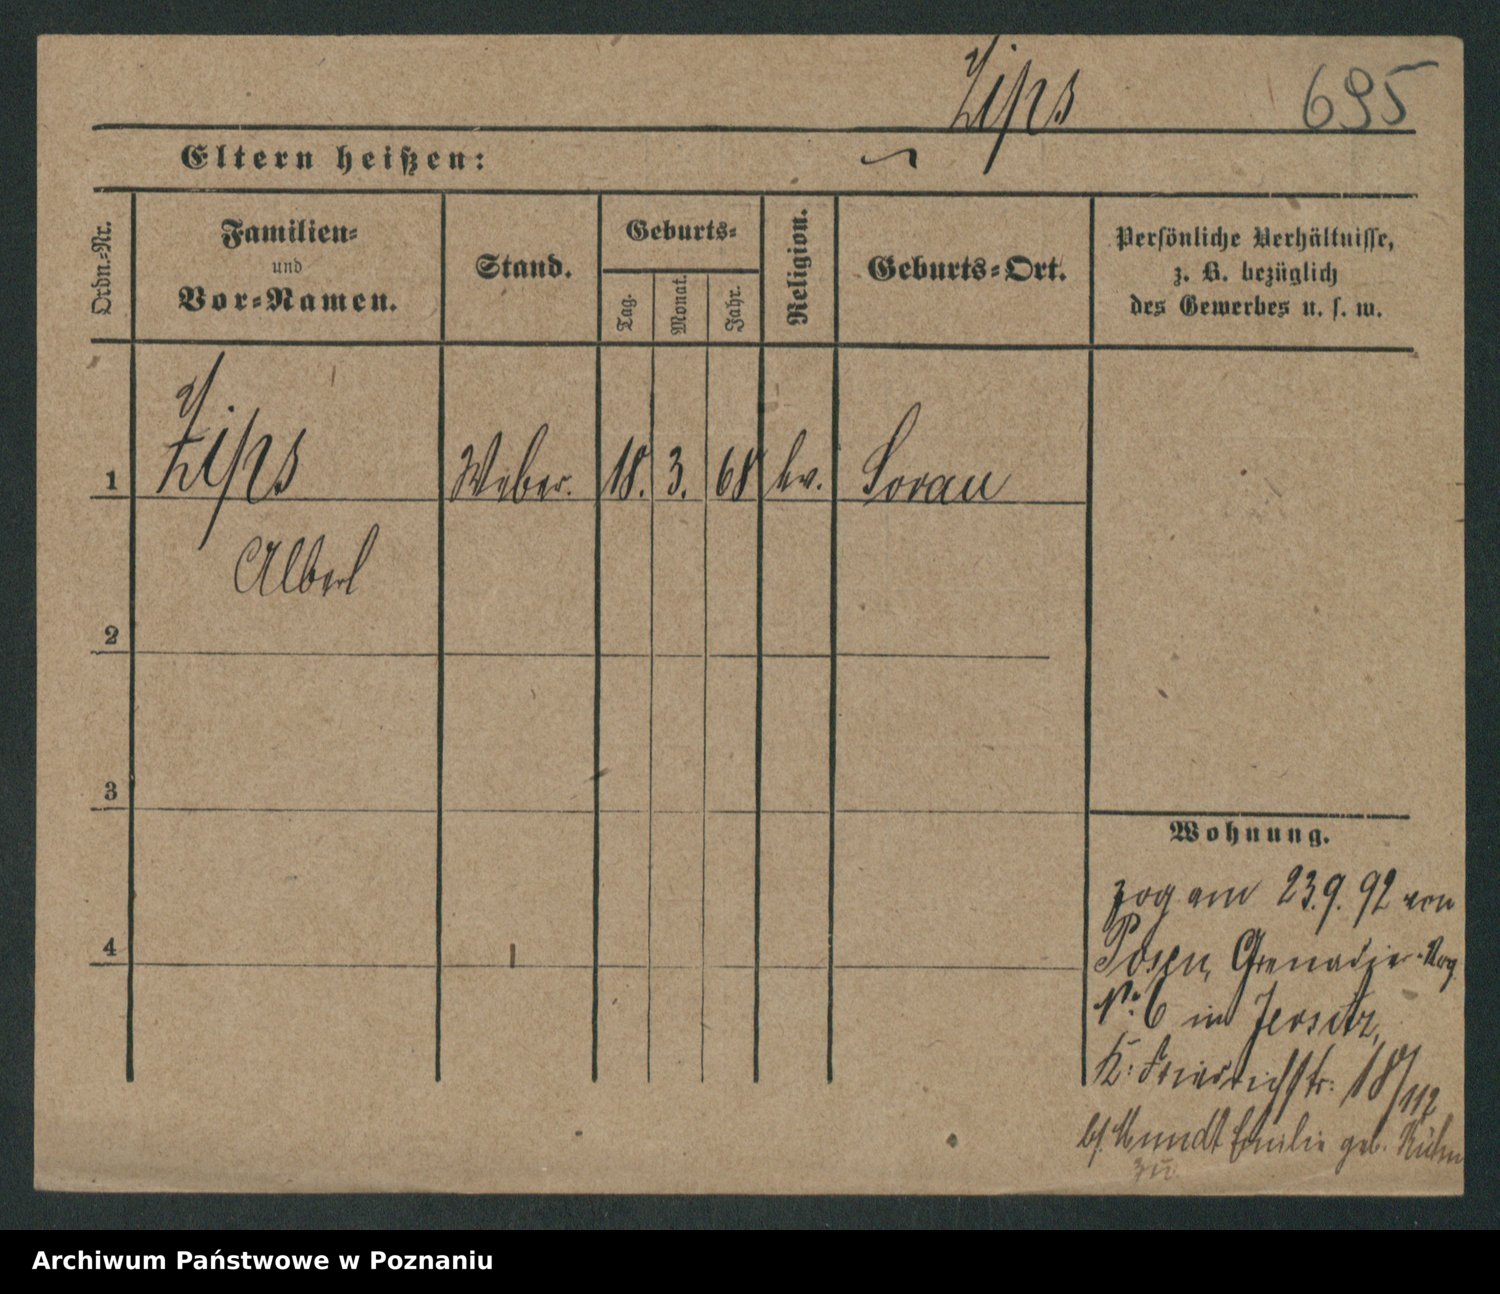 Zips 695
Eltern heißen:
Ordn.-Nr.
Familien-
und
Vor-Namen.
Stand.
Geburts-
Tag.
Monat.
Jahr.
Religion.
Geburts-Ort.
Persönliche Verhältnisse,
z. B. bezüglich
des Gewerbes u. s. w.
1 Zips Weber. 18. 3. 68 ev. Sorau
Albert
2
3
4
Wohnung.
zog am 23.9.92 von
Posen, Grenadier-Reg
No 6 in Jersitz,
K. Friedrichstr: 18/112
bf. Mundt Emilie geb. Kühn
zu.
Archiwum Państwowe w Poznaniu